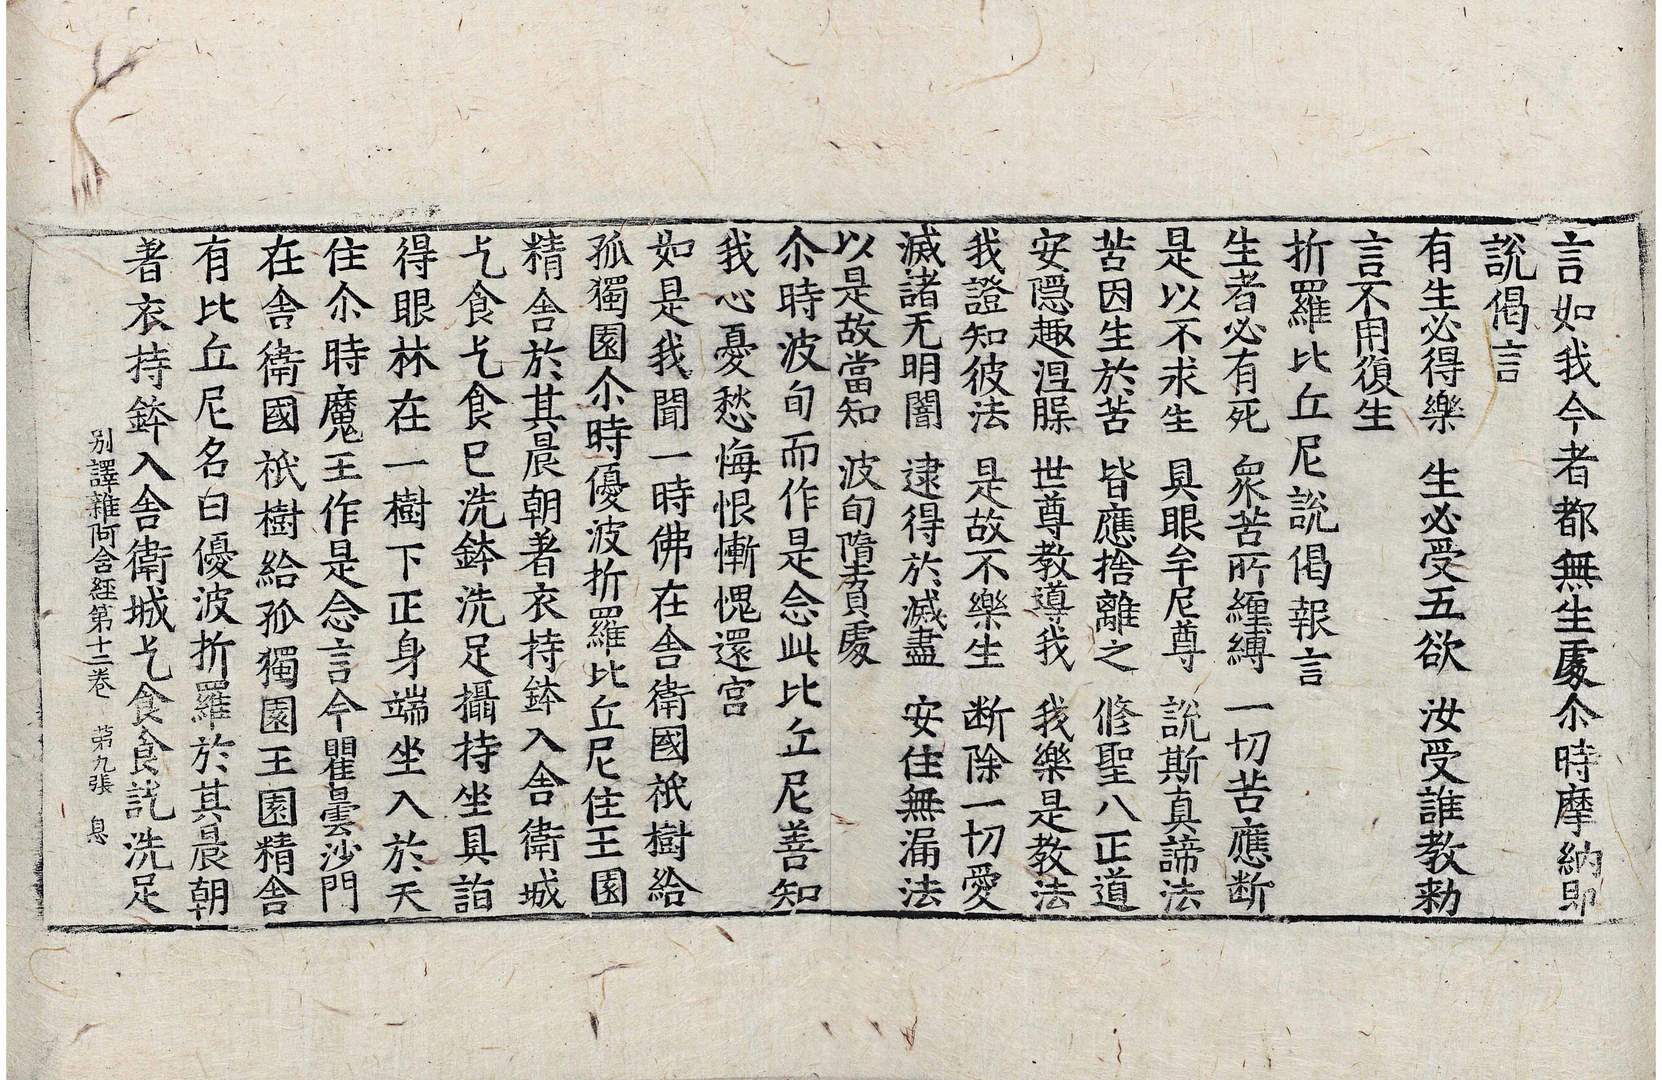 言如我今者都無生處尒時摩納即
說偈言
有生必得樂　生必受五欲　汝受誰教勑
言不用復生
折羅比丘尼說偈報言
生者必有死　衆苦所纏縛　一切苦應断
是以不求生　具眼牟尼尊　說斯真諦法
苦因生於苦　皆應捨離之　修聖八正道
安隱趣涅槃　世尊教導我　我樂是教法
我證知彼法　是故不樂生　断除一切愛
滅諸无明闇　逮得於滅盡　安住無漏法
以是故當知　波旬墮負處
尒時波旬而作是念此比丘尼善知
我心憂愁悔恨慚愧還宮
如是我聞一時佛在舍衛國祇樹給
孤獨園尒時優波折羅比丘尼住王園
精舍於其晨朝著衣持鉢入舍衛城
乞食乞食已洗鉢洗足攝持坐具詣
得眼林在一樹下正身端坐入於天
住尒時魔王作是念言今瞿曇沙門
在舍衛國祇樹給孤獨園王園精舍
有比丘尼名曰優波折羅於其晨朝
著衣持鉢入舍衛城乞食食訖洗足
别譯雜阿含經第十二卷　苐九張　息